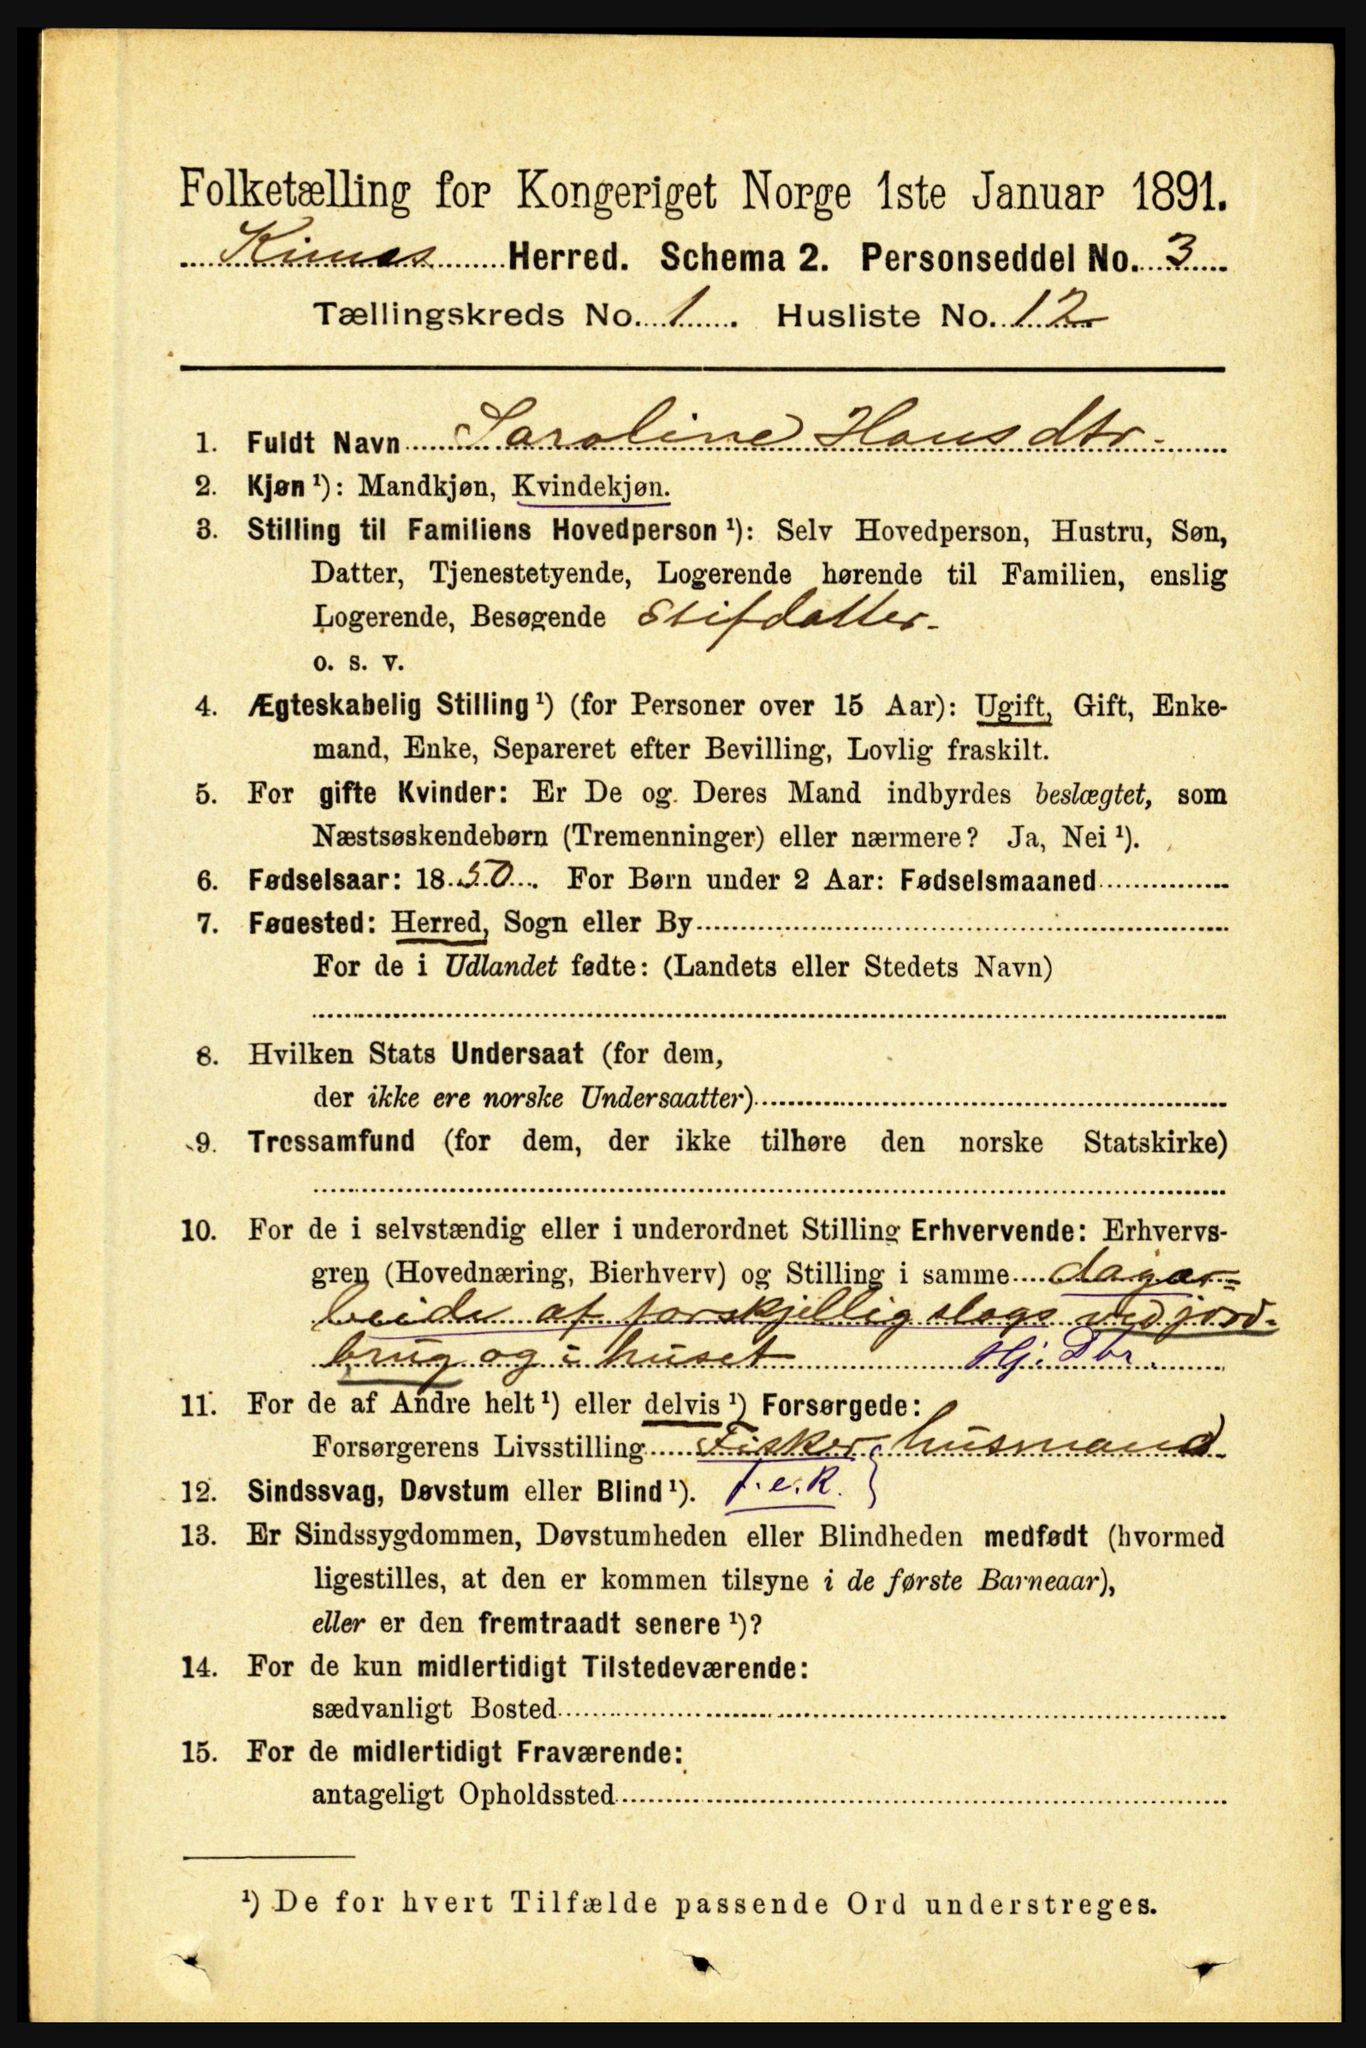 Folketælling for Kongeriget Norge 1ste Januar 1891.
Kinns Herred. Schema 2. Personseddel No. 3
Tællingskreds No. 1. Husliste No. 12
1. Fuldt Navn Saroline Hansdtr.
2. Kjøn ¹): Mandkjøn, Kvindekjøn.
3. Stilling til Familiens Hovedperson ¹): Selv Hovedperson, Hustru, Søn,
Datter, Tjenestetyende, Logerende hørende til Familien, enslig
Logerende, Besøgende Stifdatter.
o. s. v.
4. Ægteskabelig Stilling ¹) (for Personer over 15 Aar): Ugift, Gift, Enke-
mand, Enke, Separeret efter Bevilling, Lovlig fraskilt.
5. For gifte Kvinder: Er De og Deres Mand indbyrdes beslægtet, som
Næstsøskendebørn (Tremenninger) eller nærmere? Ja, Nei ¹).
6. Fødselsaar: 1850. For Børn under 2 Aar: Fødselsmaaned
7. Fødested: Herred, Sogn eller By
For de i Udlandet fødte: (Landets eller Stedets Navn)
8. Hvilken Stats Undersaat (for dem,
der ikke ere norske Undersaatter)
9. Trossamfund (for dem, der ikke tilhøre den norske Statskirke)
10. For de i selvstændig eller i underordnet Stilling Erhvervende: Erhvervs-
gren (Hovednæring, Bierhverv) og Stilling i samme dagar=
beide af forskjellig slags ved jord-
brug og i huset Hj. Dtr.
11. For de af Andre helt ¹) eller delvis ¹) Forsørgede:
Forsørgerens Livsstilling Fisker husmand
12. Sindssvag, Døvstum eller Blind ¹). f. e. R. }
13. Er Sindssygdommen, Døvstumheden eller Blindheden medfødt (hvormed
ligestilles, at den er kommen tilsyne i de første Barneaar),
eller er den fremtraadt senere ¹)?
14. For de kun midlertidigt Tilstedeværende:
sædvanligt Bosted
15. For de midlertidigt Fraværende:
antageligt Opholdssted
¹) De for hvert Tilfælde passende Ord understreges.